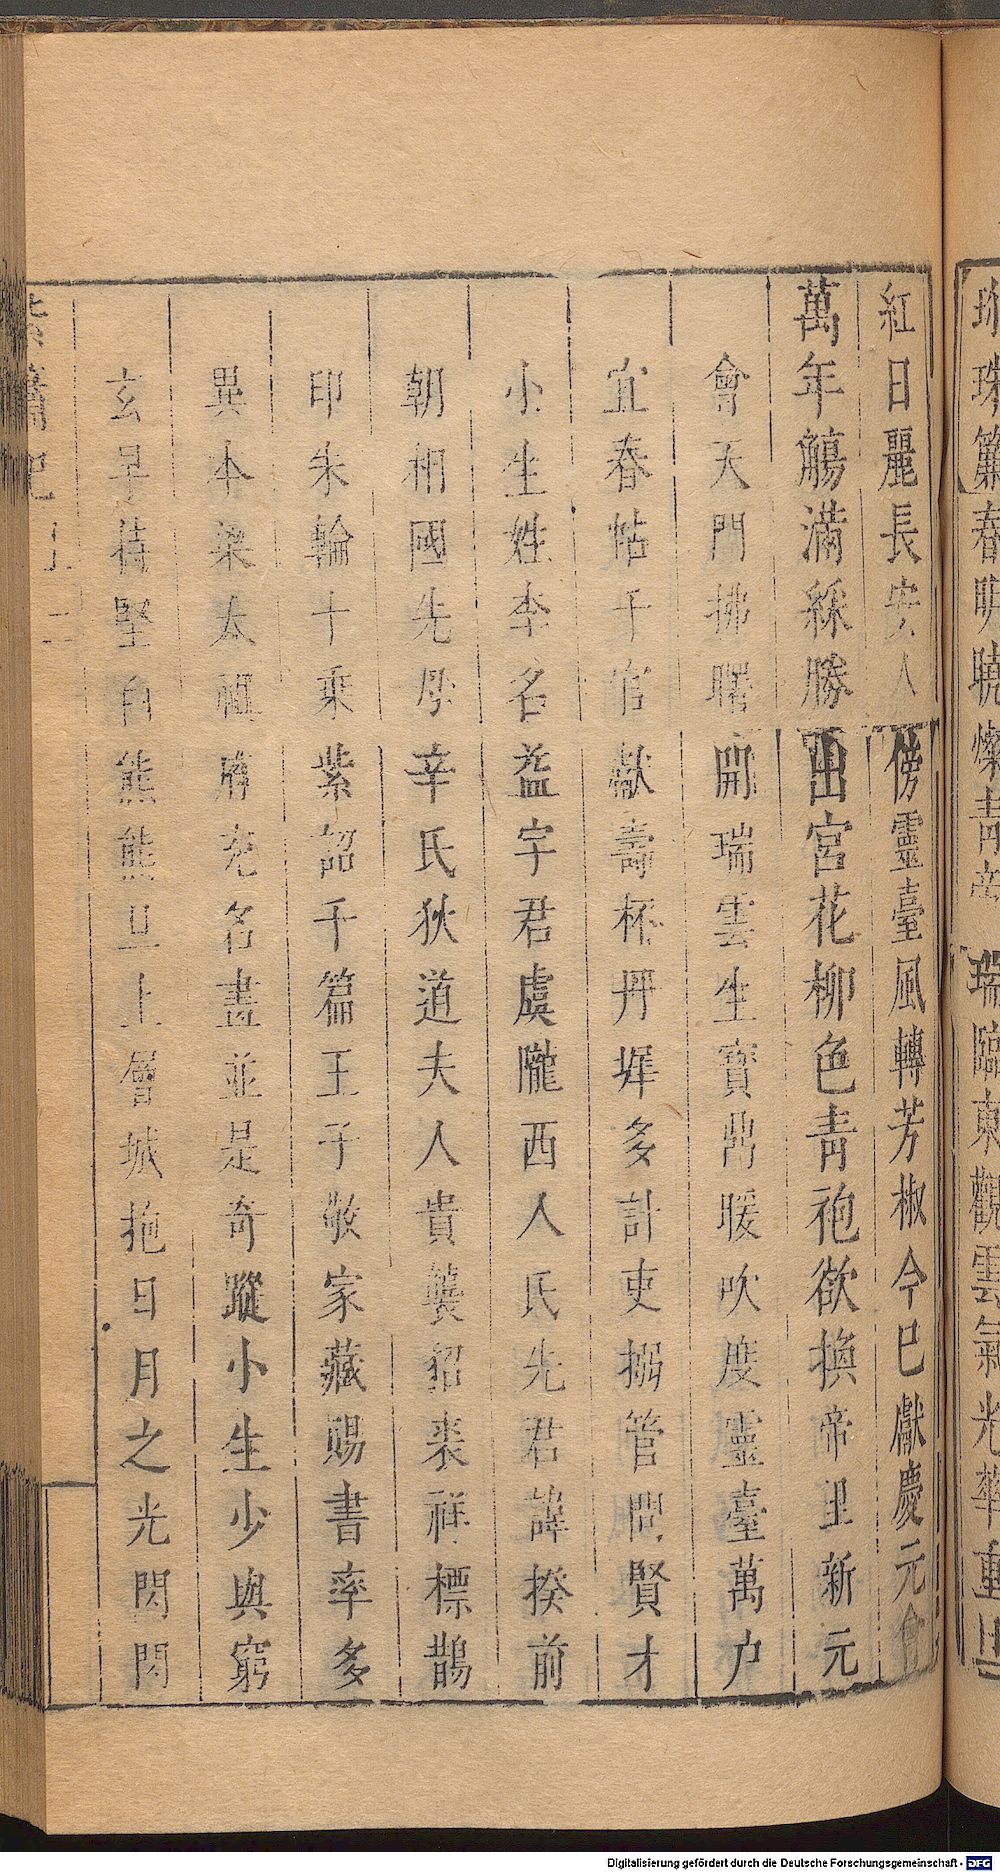 珠簾春明曉燦青
瑞臨東觀雲氣光華重
紅日麗長安人傍靈臺風轉芳椒今已獻慶元會
萬年觴滿綵勝出宮花柳色青袍欲換帝里新元
會天門拂曙開瑞雲生寶鼎暖吹度靈臺萬户
宜春帖子官獻壽杯丹墀多計吏搦管問賢才
小生姓李名益字君虞隴西人氏先君諱揆前
朝相國先母辛氏狄道夫人貴襲貂裘祥標鵲
印朱輪十乘紫詔千篇王子敬家藏賜書率多
異本梁太祖府充名畫並是奇蹤小生少與窮
玄早持堅白熊熊旦上層城拖日月之光閃閃
紫簫記
Digitalisierung gefördert durch die Deutsche Forschungsgemeinschaft - DFG